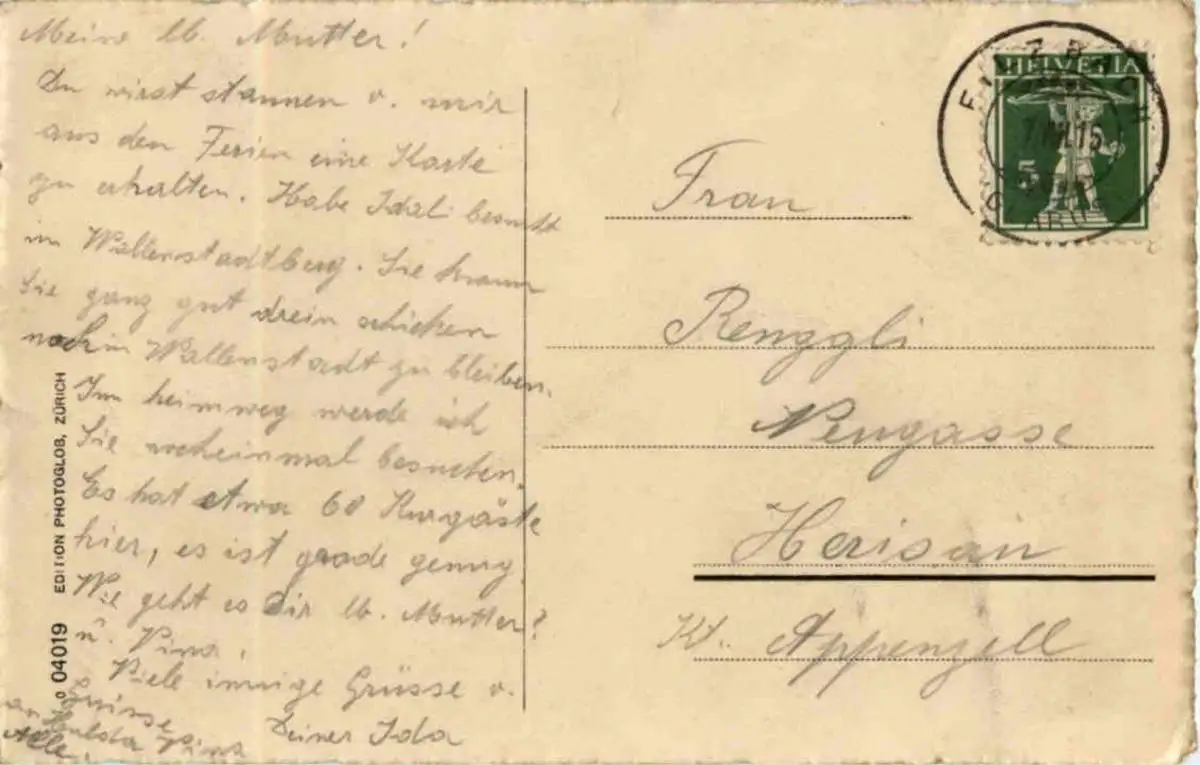 Meine lb. Mutter!
Du wirst staunen v. mir
aus den Ferien eine Karte
zu erhalten. Habe Idali besucht
im Wallenstadtberg. Sie kann
sie ganz gut drein schicken
noch in Wallenstadt zu bleiben.
Im heimweg werde ich
Sie nocheinmal besuchen.
Es hat etwa 60 Kurgäste
hier, es ist grade genug
Wie geht es Dir lb. Mutter?
u. Pina,
Viele innige Grüsse v.
Deiner Ida
Grüsse
an Hulda Pina
Alle.
o 04019 EDITION PHOTOGLOB, ZÜRICH
HELVETIA
5
FILZBACH
Frau
Renggli
Neugasse
Herisau
Kt. Appenzell